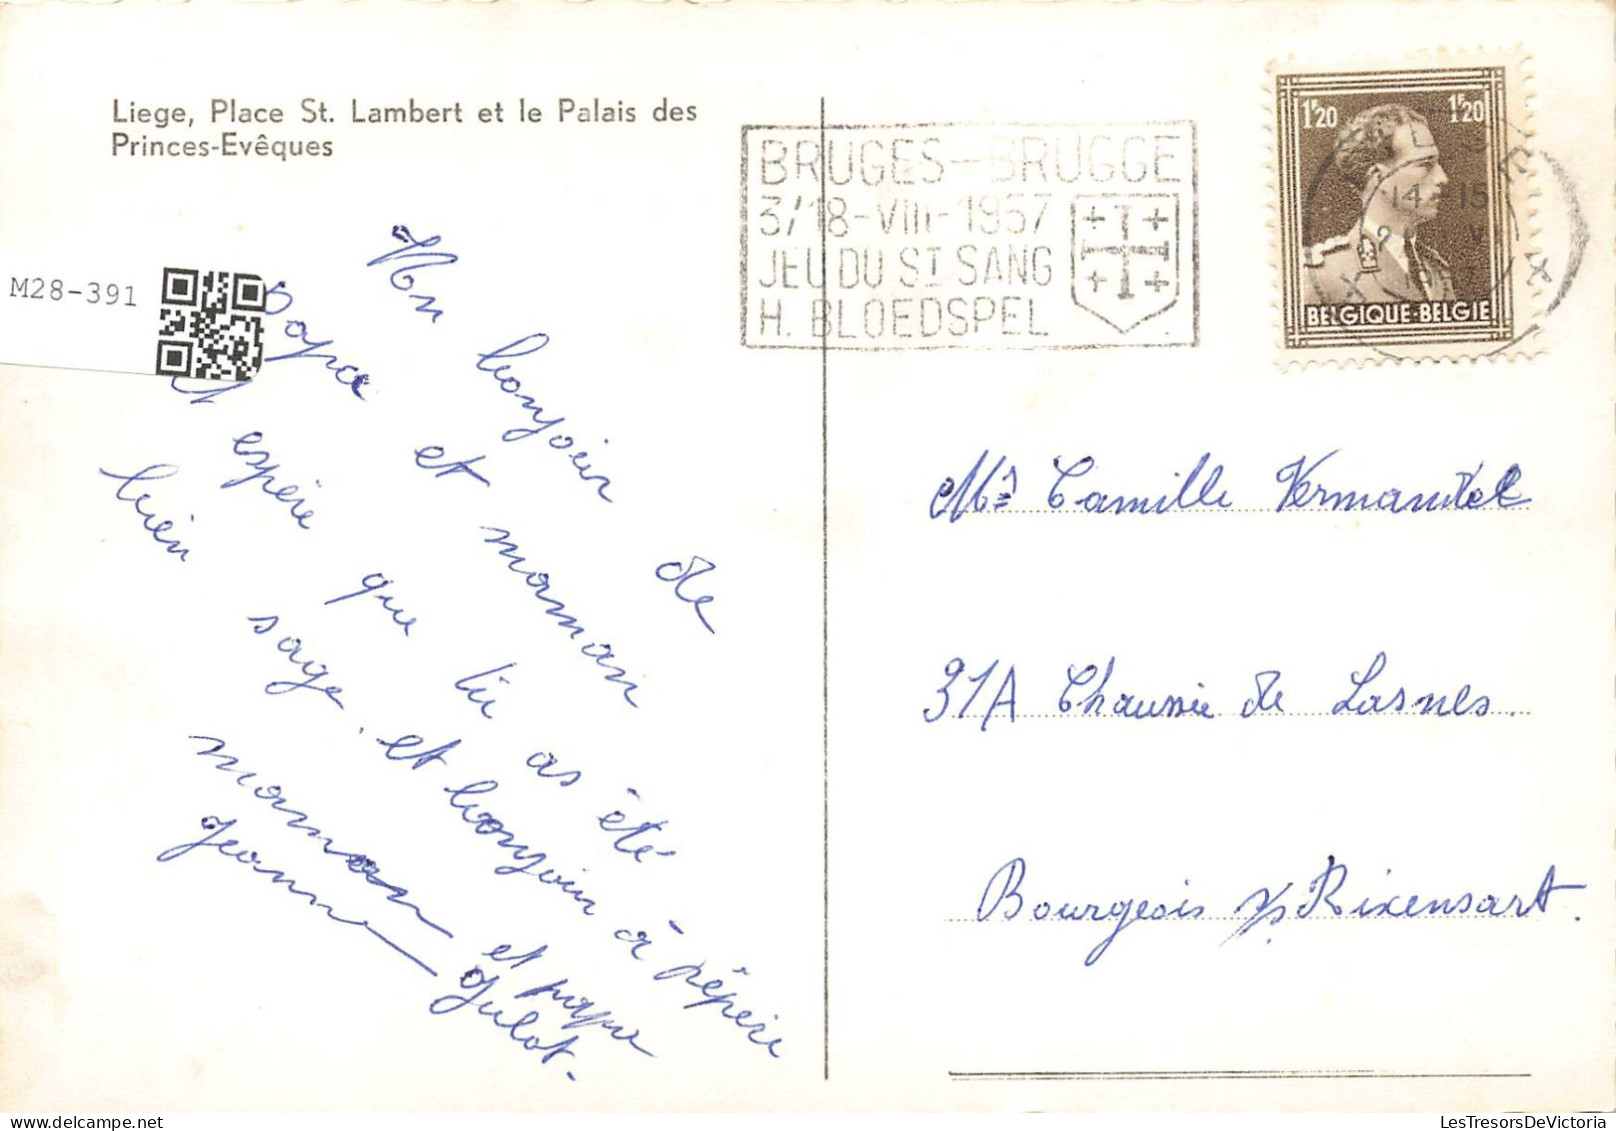 Liege, Place St. Lambert et le Palais des
Princes-Evêques
M28-391
BRUGES—BRUGGE
3/18-VIII-1957
JEU DU ST SANG
H. BLOEDSPEL
1F20 1F20
14-15
BELGIQUE-BELGIE
Un bonjour de
Papa et maman
espère que tu as été
bien sage. et bonjour à pépère
maman et papa
Jeanne Julot.
Mr Camille Vermandel
31A Chaussée de Lasnes.
Bourgeois s/s Rixensart.
LesTresorsDeVictoria